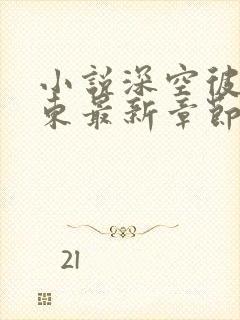 小説深空彼
東最新章節
21